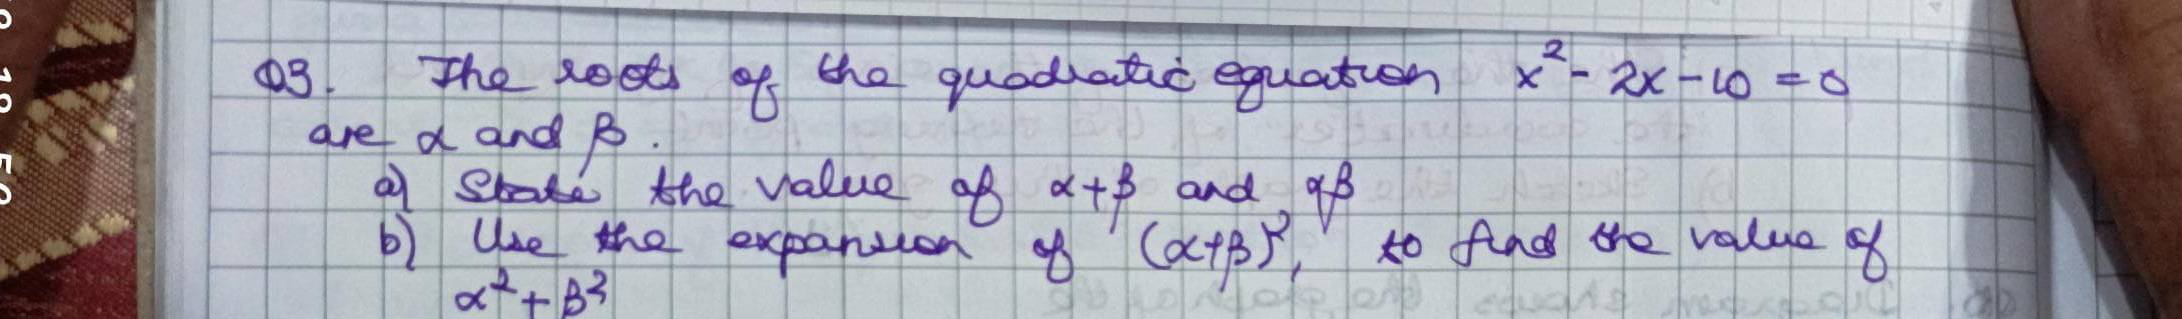 Q3. The roots of the quadratic equation x² - 2x - 10 = 0
are α and β.
a) State the value of α+β and αβ
b) Use the expansion of (α+β)², to find the value of
α² + β²